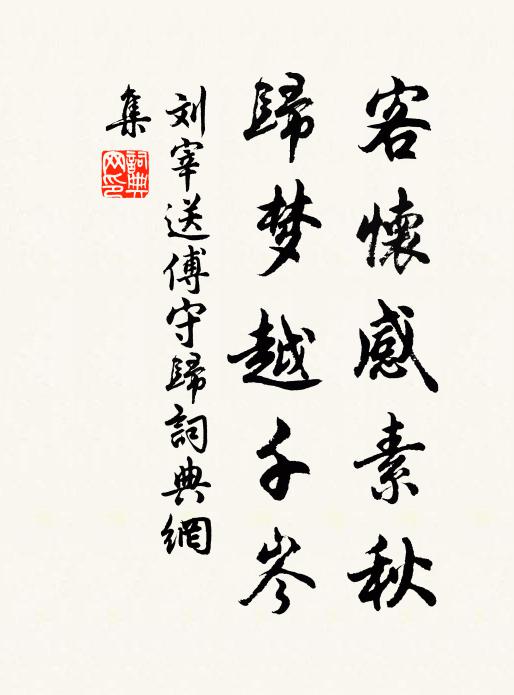 客懷感素秋
歸梦越千岑
刘宰送傅守歸詞典網
集
詞典网印